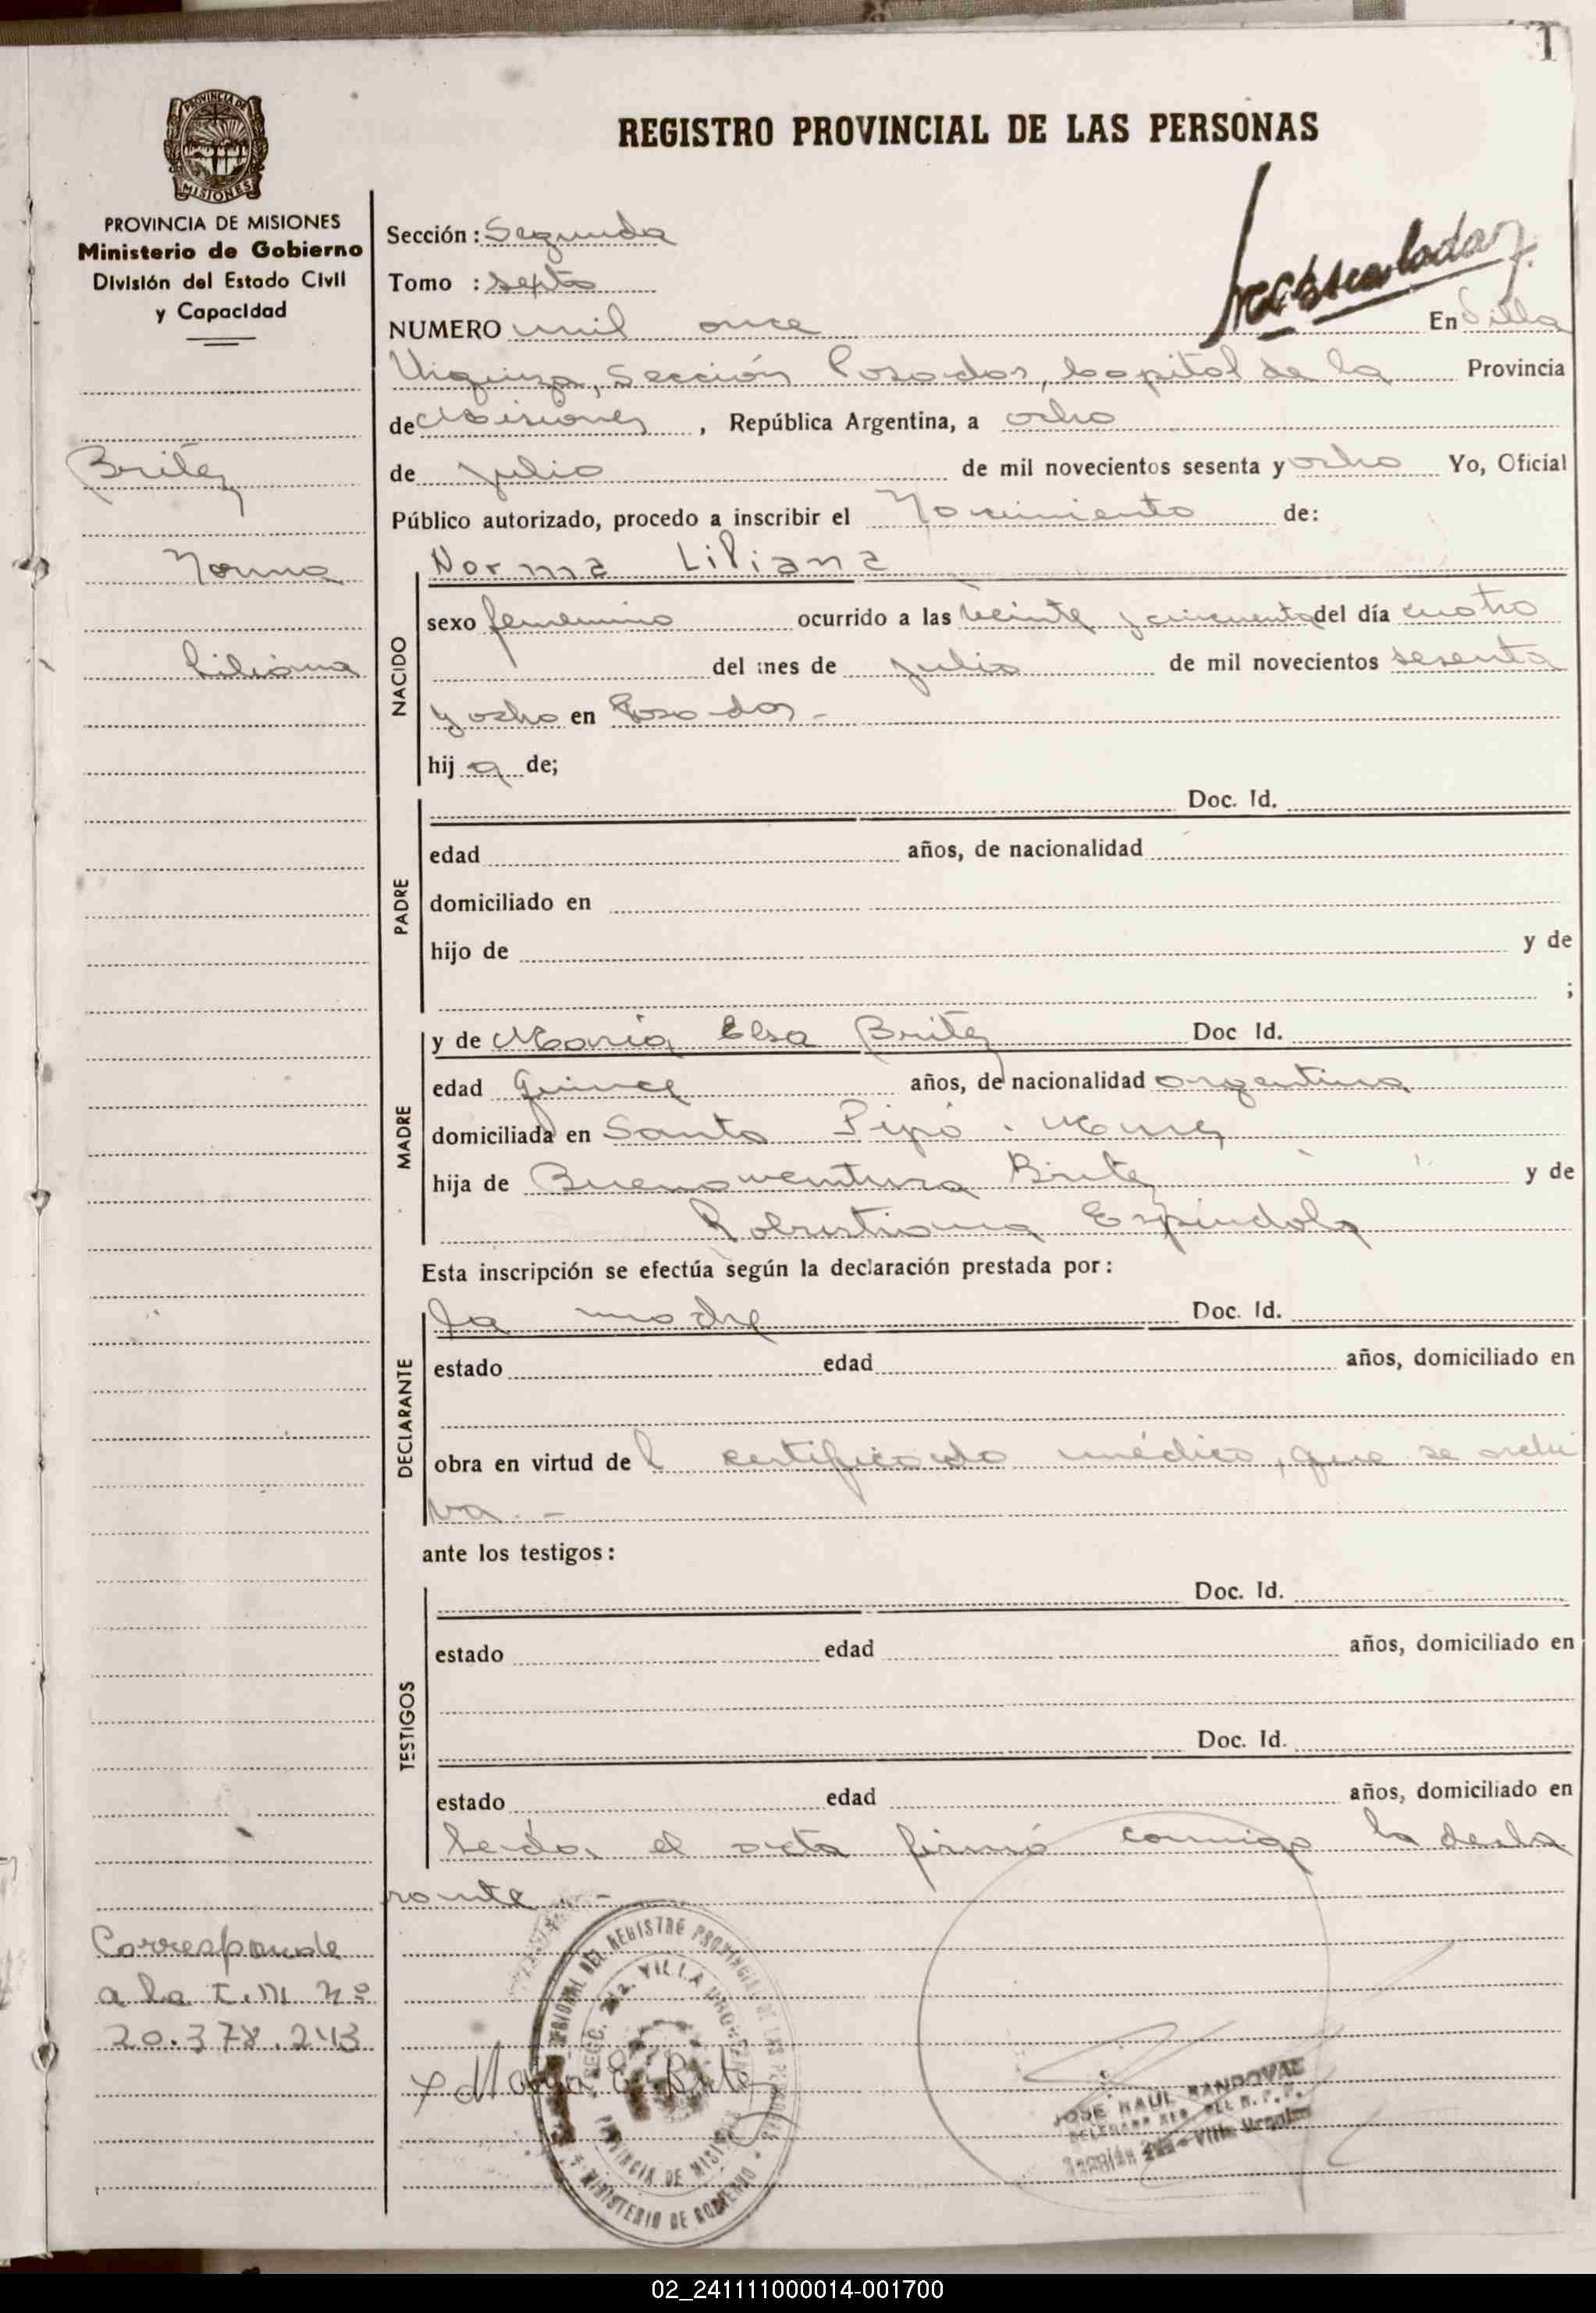 1
REGISTRO PROVINCIAL DE LAS PERSONAS
PROVINCIA DE
MISIONES
PROVINCIA DE MISIONES
Ministerio de Gobierno
División del Estado Civil
y Capacidad
Sección: Segunda
Tomo : Septo
NUMERO mil once En Villa
Urquiza, Sección Posadas, Capital de la Provincia
de Misiones, República Argentina, a ocho
de julio de mil novecientos sesenta y ocho Yo, Oficial
Público autorizado, procedo a inscribir el Nacimiento de:
Britez
Norma
Liliana
NACIDO
Norma Liliana
sexo femenino ocurrido a las veinte y cincuenta del día cuatro
del mes de julio de mil novecientos sesenta
y ocho en Posadas.-
hij a de;
PADRE
Doc. Id.
edad años, de nacionalidad
domiciliado en
hijo de y de
;
MADRE
y de María Elsa Britez Doc Id.
edad Quince años, de nacionalidad argentina
domiciliada en Santo Pipó.
hija de Buenaventura Britez y de
Robustiana Espíndola
Esta inscripción se efectúa según la declaración prestada por:
DECLARANTE
la madre Doc. Id.
estado edad años, domiciliado en
obra en virtud de l certificado médico, que se archi
va.-
ante los testigos:
TESTIGOS
Doc. Id.
estado edad años, domiciliado en
Doc. Id.
estado edad años, domiciliado en
Leída el acta firmó conmigo la decla
rante.-
Corresponde
a la I.M Nº
20.378.243
REGIONAL DEL REGISTRO PROVINCIAL DE LAS PERSONAS
SECC. 2da. VILLA URQUIZA
PROVINCIA DE MISIONES
MINISTERIO DE GOBIERNO
x María E. Britez
JOSE RAUL SANDOVAL
DELEGADO REG. DEL R.P.P.
Sección 2da - Villa Urquiza
02_241111000014-001700